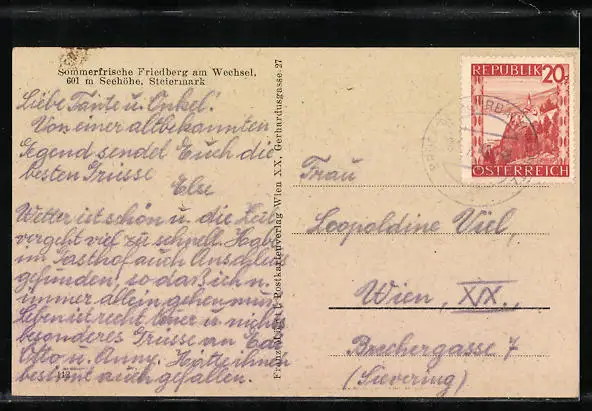 Sommerfrische Friedberg am Wechsel,
601 m Seehöhe, Steiermark
Liebe Tante u. Onkel!
Von einer altbekannten
Gegend sendet Euch die
besten Grüsse
Else
Wetter ist schön u. die Zeit
vergeht viel zu schnell. Habe
im Gasthof auch Anschluss
gefunden, so daß ich n.
immer allein gehen muss.
Leben ist recht teuer u. nicht
besonderes Grüsse an
Otto u. Anny. Hätte ihnen
bestimt auch gefallen.
112
Postkartenverlag Wien XX, Gerhardusgasse 27
REPUBLIK 20g
ÖSTERREICH
Frau
Leopoldine Viel,
Wien, XIX.,
Brechergasse 7
(Sievering)